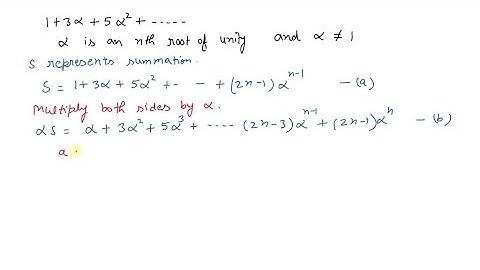 1 + 3α + 5α² + -----
α is an nth root of unity and α ≠ 1
S represents summation.
S = 1 + 3α + 5α² + - - + (2n-1) α^(n-1) - (a)
Multiply both sides by α.
αS = α + 3α² + 5α³ + ---- (2n-3) α^(n-1) + (2n-1) α^n - (b)
a -